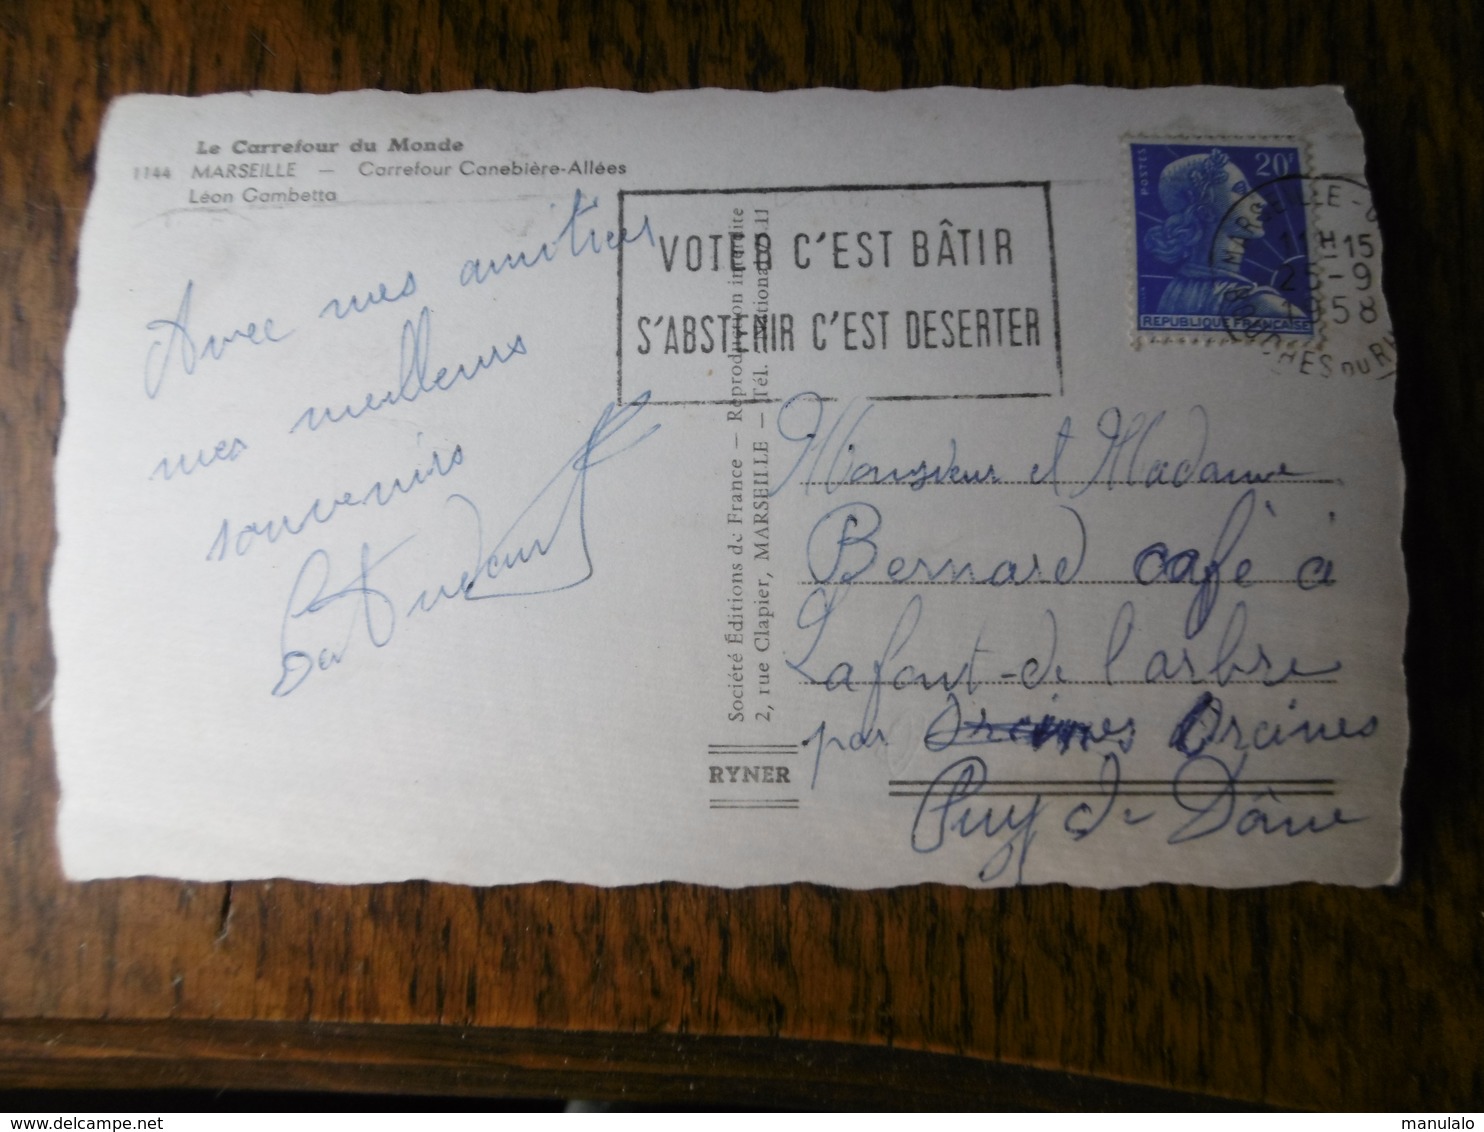 Le Carrefour du Monde
1144 MARSEILLE — Carrefour Canebière-Allées
Léon Gambetta
Avec mes amitiés
mes meilleurs
souvenirs
VOTER C'EST BÂTIR
S'ABSTENIR C'EST DESERTER
POSTES
20F
REPUBLIQUE FRANCAISE
MARSEILLE
11H15
25-9
1958
BOUCHES DU RH
Société Éditions de France — Reproduction interdite
2, rue Clapier, MARSEILLE — Tél. National
RYNER
Monsieur et Madame
Bernard café à
Lafont-de l'arbre
par Orcines Orcines
Puy de Dôme
manulalo